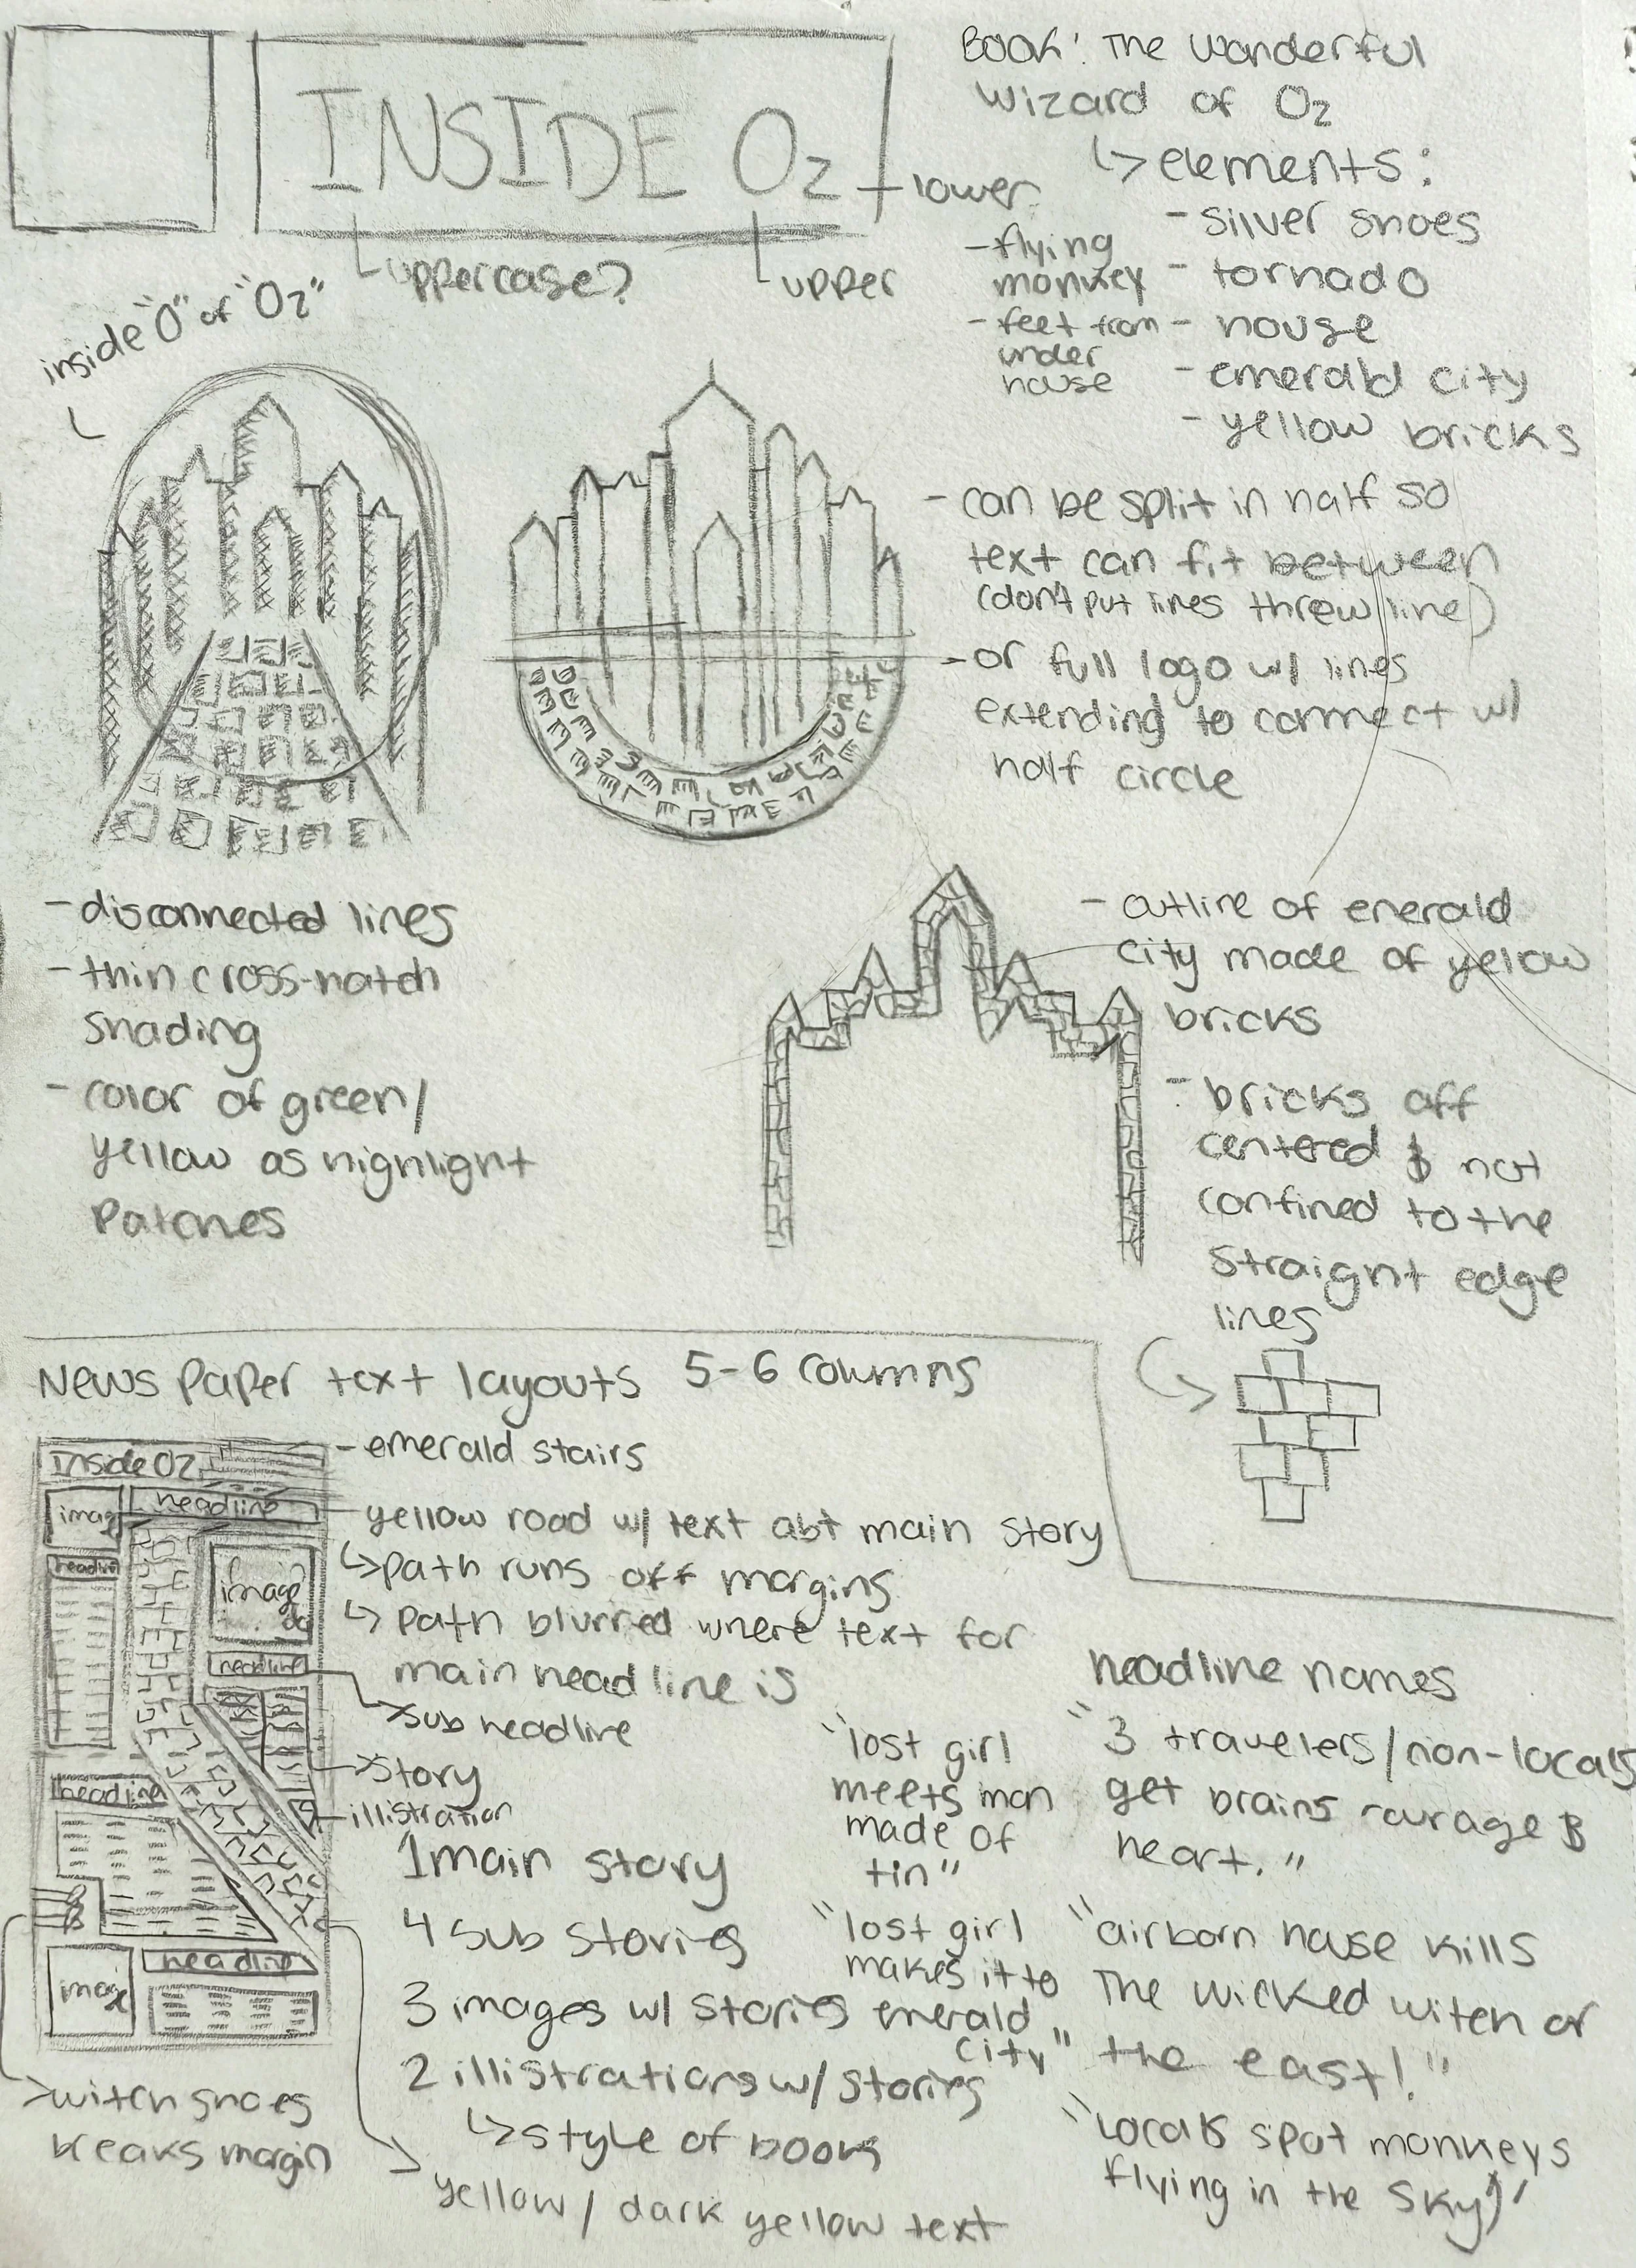 INSIDE Oz
lower
uppercase?
upper
inside "O" of "Oz"
Book: The wonderful
wizard of Oz
elements:
- silver shoes
- tornado
- house
- emerald city
- yellow bricks
- flying
monkey
- feet from
under
house
- can be split in half so
text can fit between
(don't put lines threw line)
- or full logo w/ lines
extending to connect w/
half circle
- disconnected lines
- thin cross-hatch
shading
- color of green/
yellow as highlight
patches
- outline of emerald
city made of yellow
bricks
- bricks off
centered & not
confined to the
straight edge
lines
News Paper text layouts 5-6 columns
Inside Oz
image
headline
headline
image
headline
headline
image
headline
- emerald stairs
yellow road w/ text abt main story
path runs off margins
path blurred where text for
main headline is
sub headline
story
illistration
1 main story
4 sub stories
3 images w/ stories
2 illistrations w/ stories
style of book
yellow / dark yellow text
witch shoes
breaks margin
headline names
"lost girl
meets man
made of
tin"
"lost girl
makes it to
emerald
city"
"3 travelers/non-locals
get brains courage &
heart."
"airborn house kills
The wicked witch of
the east!"
"Locals spot monkeys
flying in the sky"